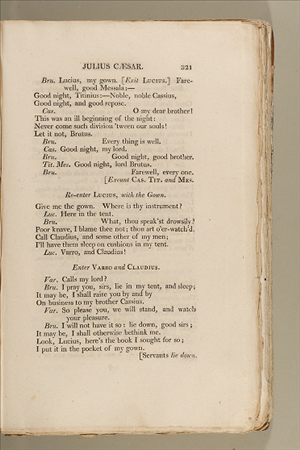 JULIUS CÆSAR. 321
Bru. Lucius, my gown. [Exit LUCIUS.] Fare-
well, good Messala:—
Good night, Titinius:—Noble, noble Cassius,
Good night, and good repose.
Cas. O my dear brother!
This was an ill beginning of the night:
Never come such division 'tween our souls!
Let it not, Brutus.
Bru. Every thing is well.
Cas. Good night, my lord.
Bru. Good night, good brother.
Tit. Mes. Good night, lord Brutus.
Bru. Farewell, every one.
[Exeunt CAS. TIT. and MES.
Re-enter LUCIUS, with the Gown.
Give me the gown. Where is thy instrument?
Luc. Here in the tent.
Bru. What, thou speak'st drowsily?
Poor knave, I blame thee not; thou art o'er-watch'd.
Call Claudius, and some other of my men;
I'll have them sleep on cushions in my tent.
Luc. Varro, and Claudius!
Enter VARRO and CLAUDIUS.
Var. Calls my lord?
Bru. I pray you, sirs, lie in my tent, and sleep;
It may be, I shall raise you by and by
On business to my brother Cassius.
Var. So please you, we will stand, and watch
your pleasure.
Bru. I will not have it so: lie down, good sirs;
It may be, I shall otherwise bethink me.
Look, Lucius, here's the book I sought for so;
I put it in the pocket of my gown.
[Servants lie down.